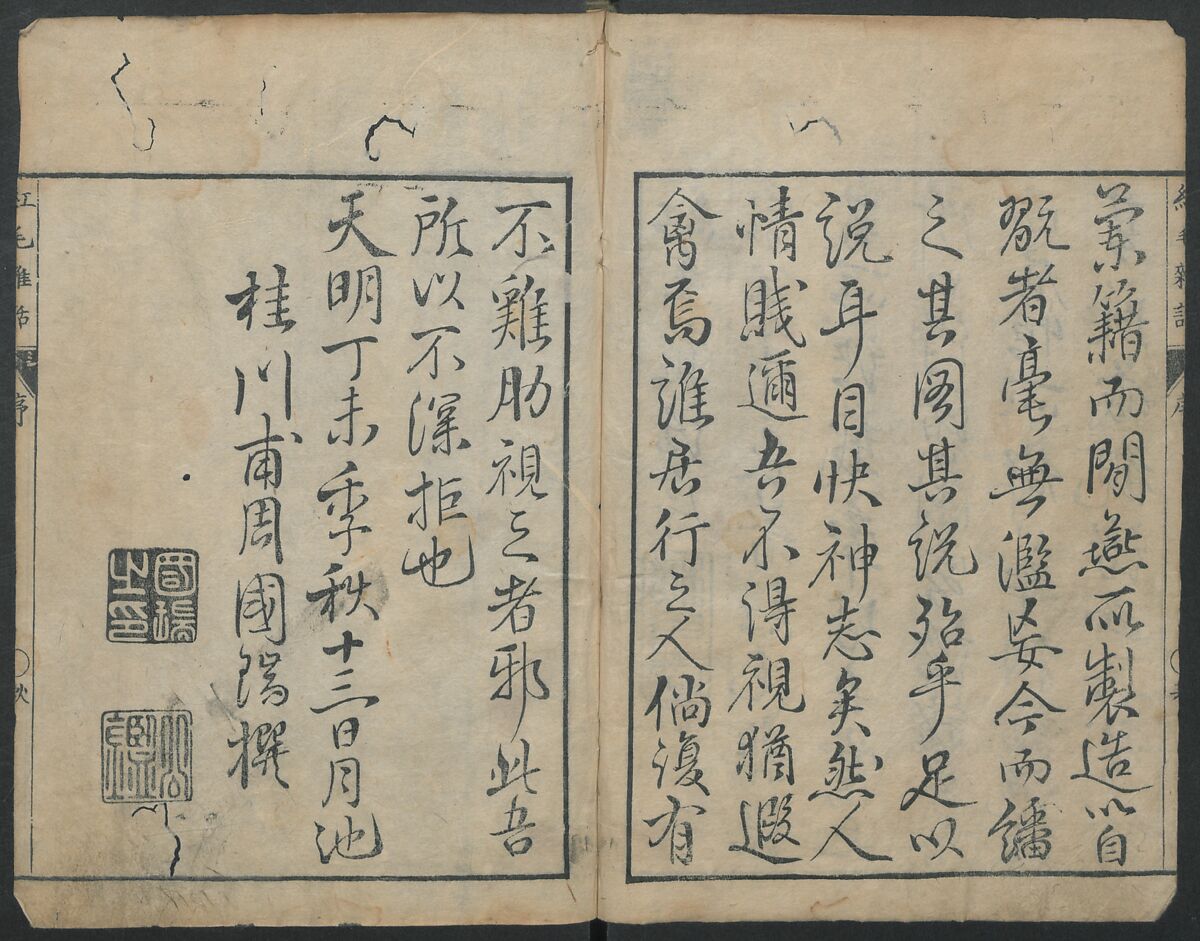 紅毛雜話 序
蘭籍而閒燕所製造以自
翫者毫無濫妄今而譒
之其图其説殆乎足以
説耳目快神志矣然人
情賤邇吾不得視猶遐
禽焉誰居行之人倘復有
不雞肋視之者邪此吾
所以不深拒也
天明丁未季秋十三日月池
桂川甫周國瑞撰
國瑞之印
紅毛雜話 序